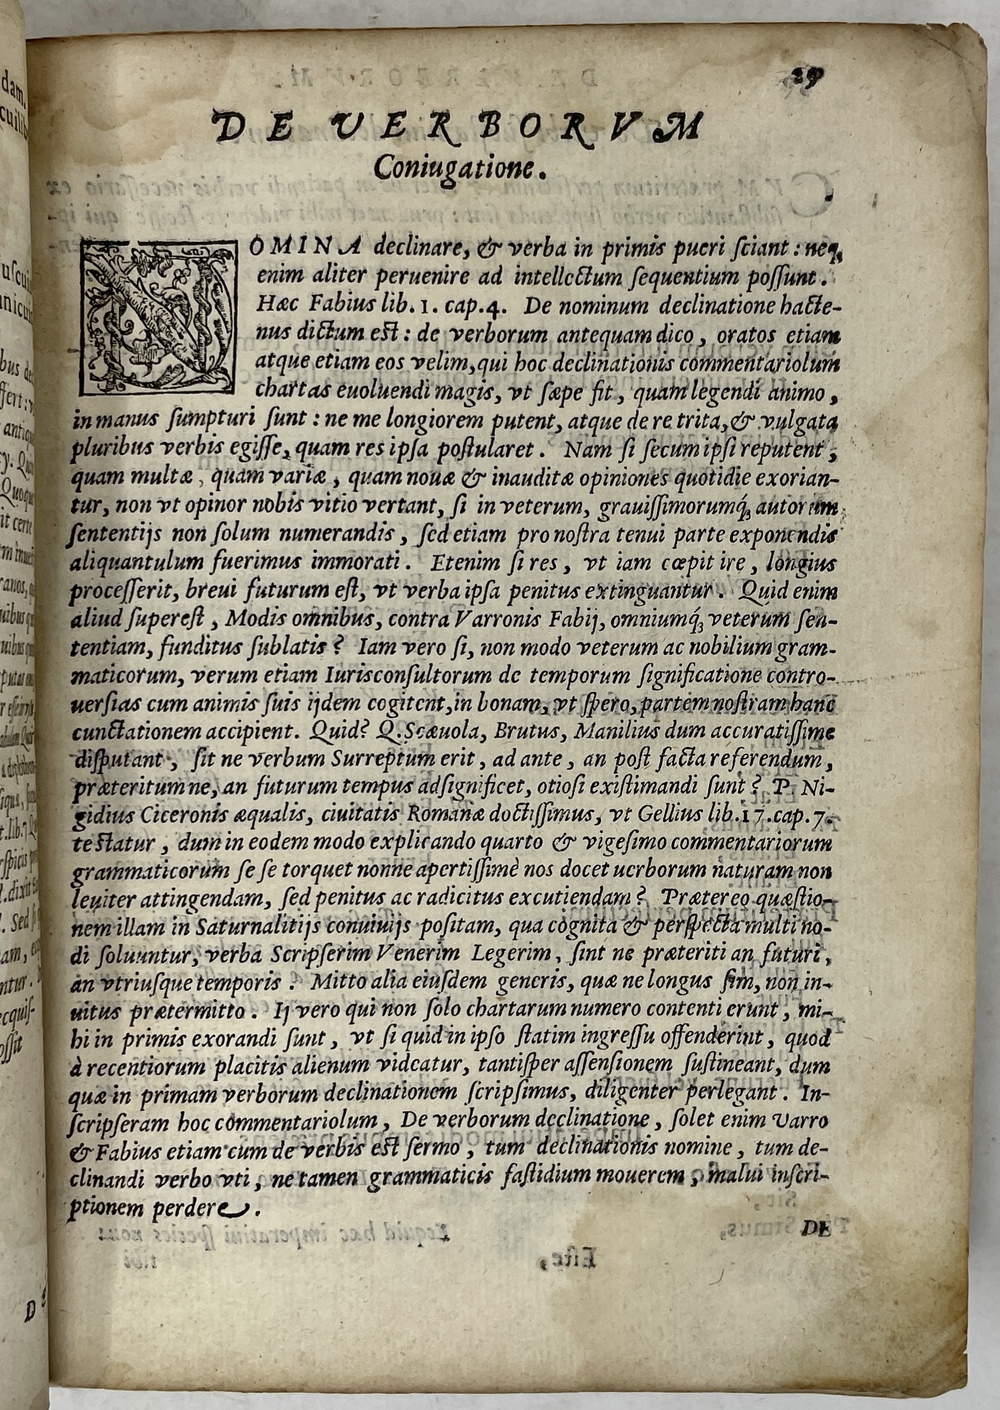 29
DE VERBORVM
Coniugatione.
NOMINA declinare, & verba in primis pueri ſciant: neq;
enim aliter peruenire ad intellectum ſequentium poſſunt.
Hæc Fabius lib. 1. cap. 4. De nominum declinatione hacte-
nus dictum eſt: de verborum antequam dico, oratos etiam
atque etiam eos velim, qui hoc declinationis commentariolum
chartas euoluendi magis, vt ſæpe fit, quam legendi animo,
in manus ſumpturi ſunt: ne me longiorem putent, atque de re trita, & vulgata
pluribus verbis egiſſe, quam res ipſa poſtularet. Nam ſi ſecum ipſi reputent,
quam multæ, quam variæ, quam nouæ & inauditæ opiniones quotidie exorian-
tur, non vt opinor nobis vitio vertant, ſi in veterum, grauiſſimorumq́; autorum
ſententijs non ſolum numerandis, ſed etiam pro noſtra tenui parte exponendis
aliquantulum fuerimus immorati. Etenim ſi res, vt iam cœpit ire, longius
proceſſerit, breui futurum eſt, vt verba ipſa penitus extinguantur. Quid enim
aliud ſupereſt, Modis omnibus, contra Varronis Fabij, omniumq́; veterum ſen-
tentiam, funditus ſublatis? Iam vero ſi, non modo veterum ac nobilium gram-
maticorum, verum etiam Iurisconſultorum de temporum ſignificatione contro-
uerſias cum animis ſuis ijdem cogitent, in bonam, vt ſpero, partem noſtram hanc
cunctationem accipient. Quid? Q. Scæuola, Brutus, Manilius dum accuratiſſime
diſputant, ſit ne verbum Surreptum erit, ad ante, an poſt facta referendum,
præteritum ne, an futurum tempus adſignificet, otioſi exiſtimandi ſunt? P. Ni-
gidius Ciceronis æqualis, ciuitatis Romanæ doctiſſimus, vt Gellius lib. 17. cap. 7.
teſtatur, dum in eodem modo explicando quarto & vigeſimo commentariorum
grammaticorum ſe ſe torquet nonne apertiſſimè nos docet uerborum naturam non
leuiter attingendam, ſed penitus ac radicitus excutiendam? Prætereo quæſtio-
nem illam in Saturnalitijs conuiuijs poſitam, qua cognita & perſpecta multi no-
di ſoluuntur, verba Scripſerim Venerim Legerim, ſint ne præteriti an futuri,
an vtriuſque temporis? Mitto alia eiuſdem generis, quæ ne longus ſim, non in-
uitus prætermitto. Ij vero qui non ſolo chartarum numero contenti erunt, mi-
hi in primis exorandi ſunt, vt ſi quid in ipſo ſtatim ingreſſu offenderint, quod
à recentiorum placitis alienum videatur, tantiſper aſſenſionem ſuſtineant, dum
quæ in primam verborum declinationem ſcripſimus, diligenter perlegant. In-
ſcripſeram hoc commentariolum, De verborum declinatione, ſolet enim Varro
& Fabius etiam cum de verbis eſt ſermo, tum declinationis nomine, tum de-
clinandi verbo vti, ne tamen grammaticis faſtidium mouerem, malui inſcri-
ptionem perdere.
DE